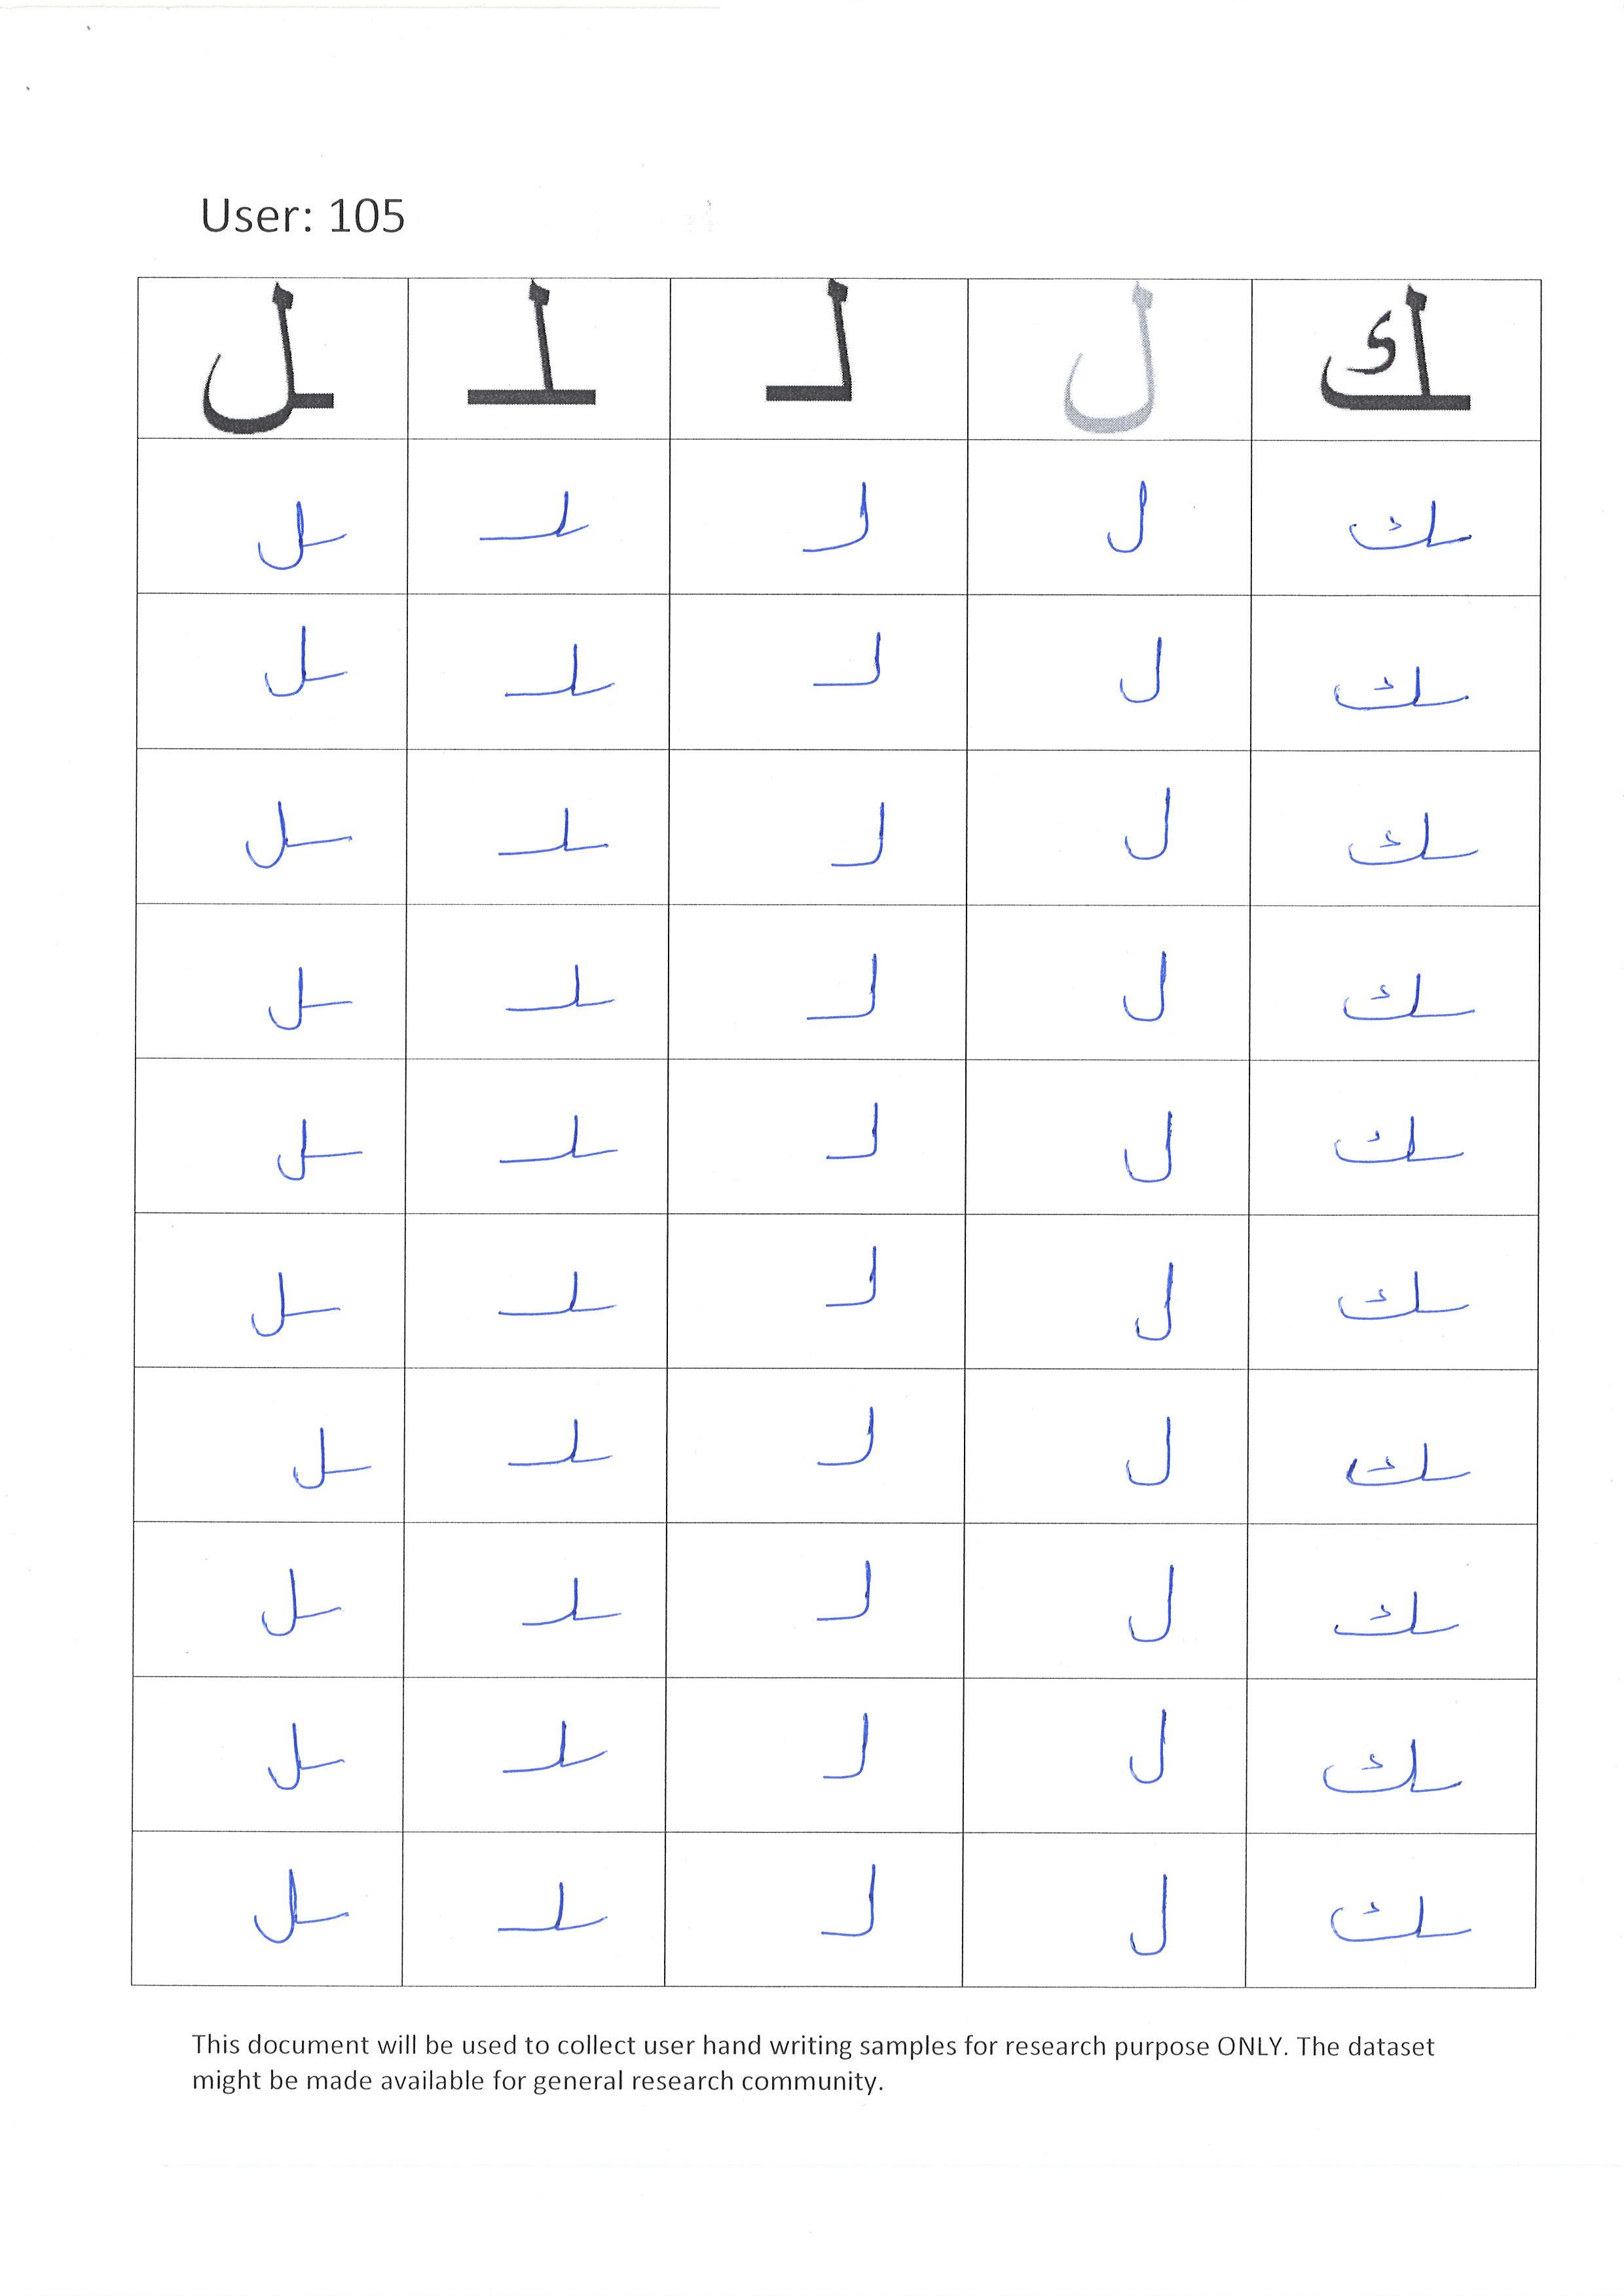 User: 105
ـك ل لـ ـلـ ـل
ـك ل لـ ـلـ ـل
ـك ل لـ ـلـ ـل
ـك ل لـ ـلـ ـل
ـك ل لـ ـلـ ـل
ـك ل لـ ـلـ ـل
ـك ل لـ ـلـ ـل
ـك ل لـ ـلـ ـل
ـك ل لـ ـلـ ـل
ـك ل لـ ـلـ ـل
ـك ل لـ ـلـ ـل
This document will be used to collect user hand writing samples for research purpose ONLY. The dataset
might be made available for general research community.